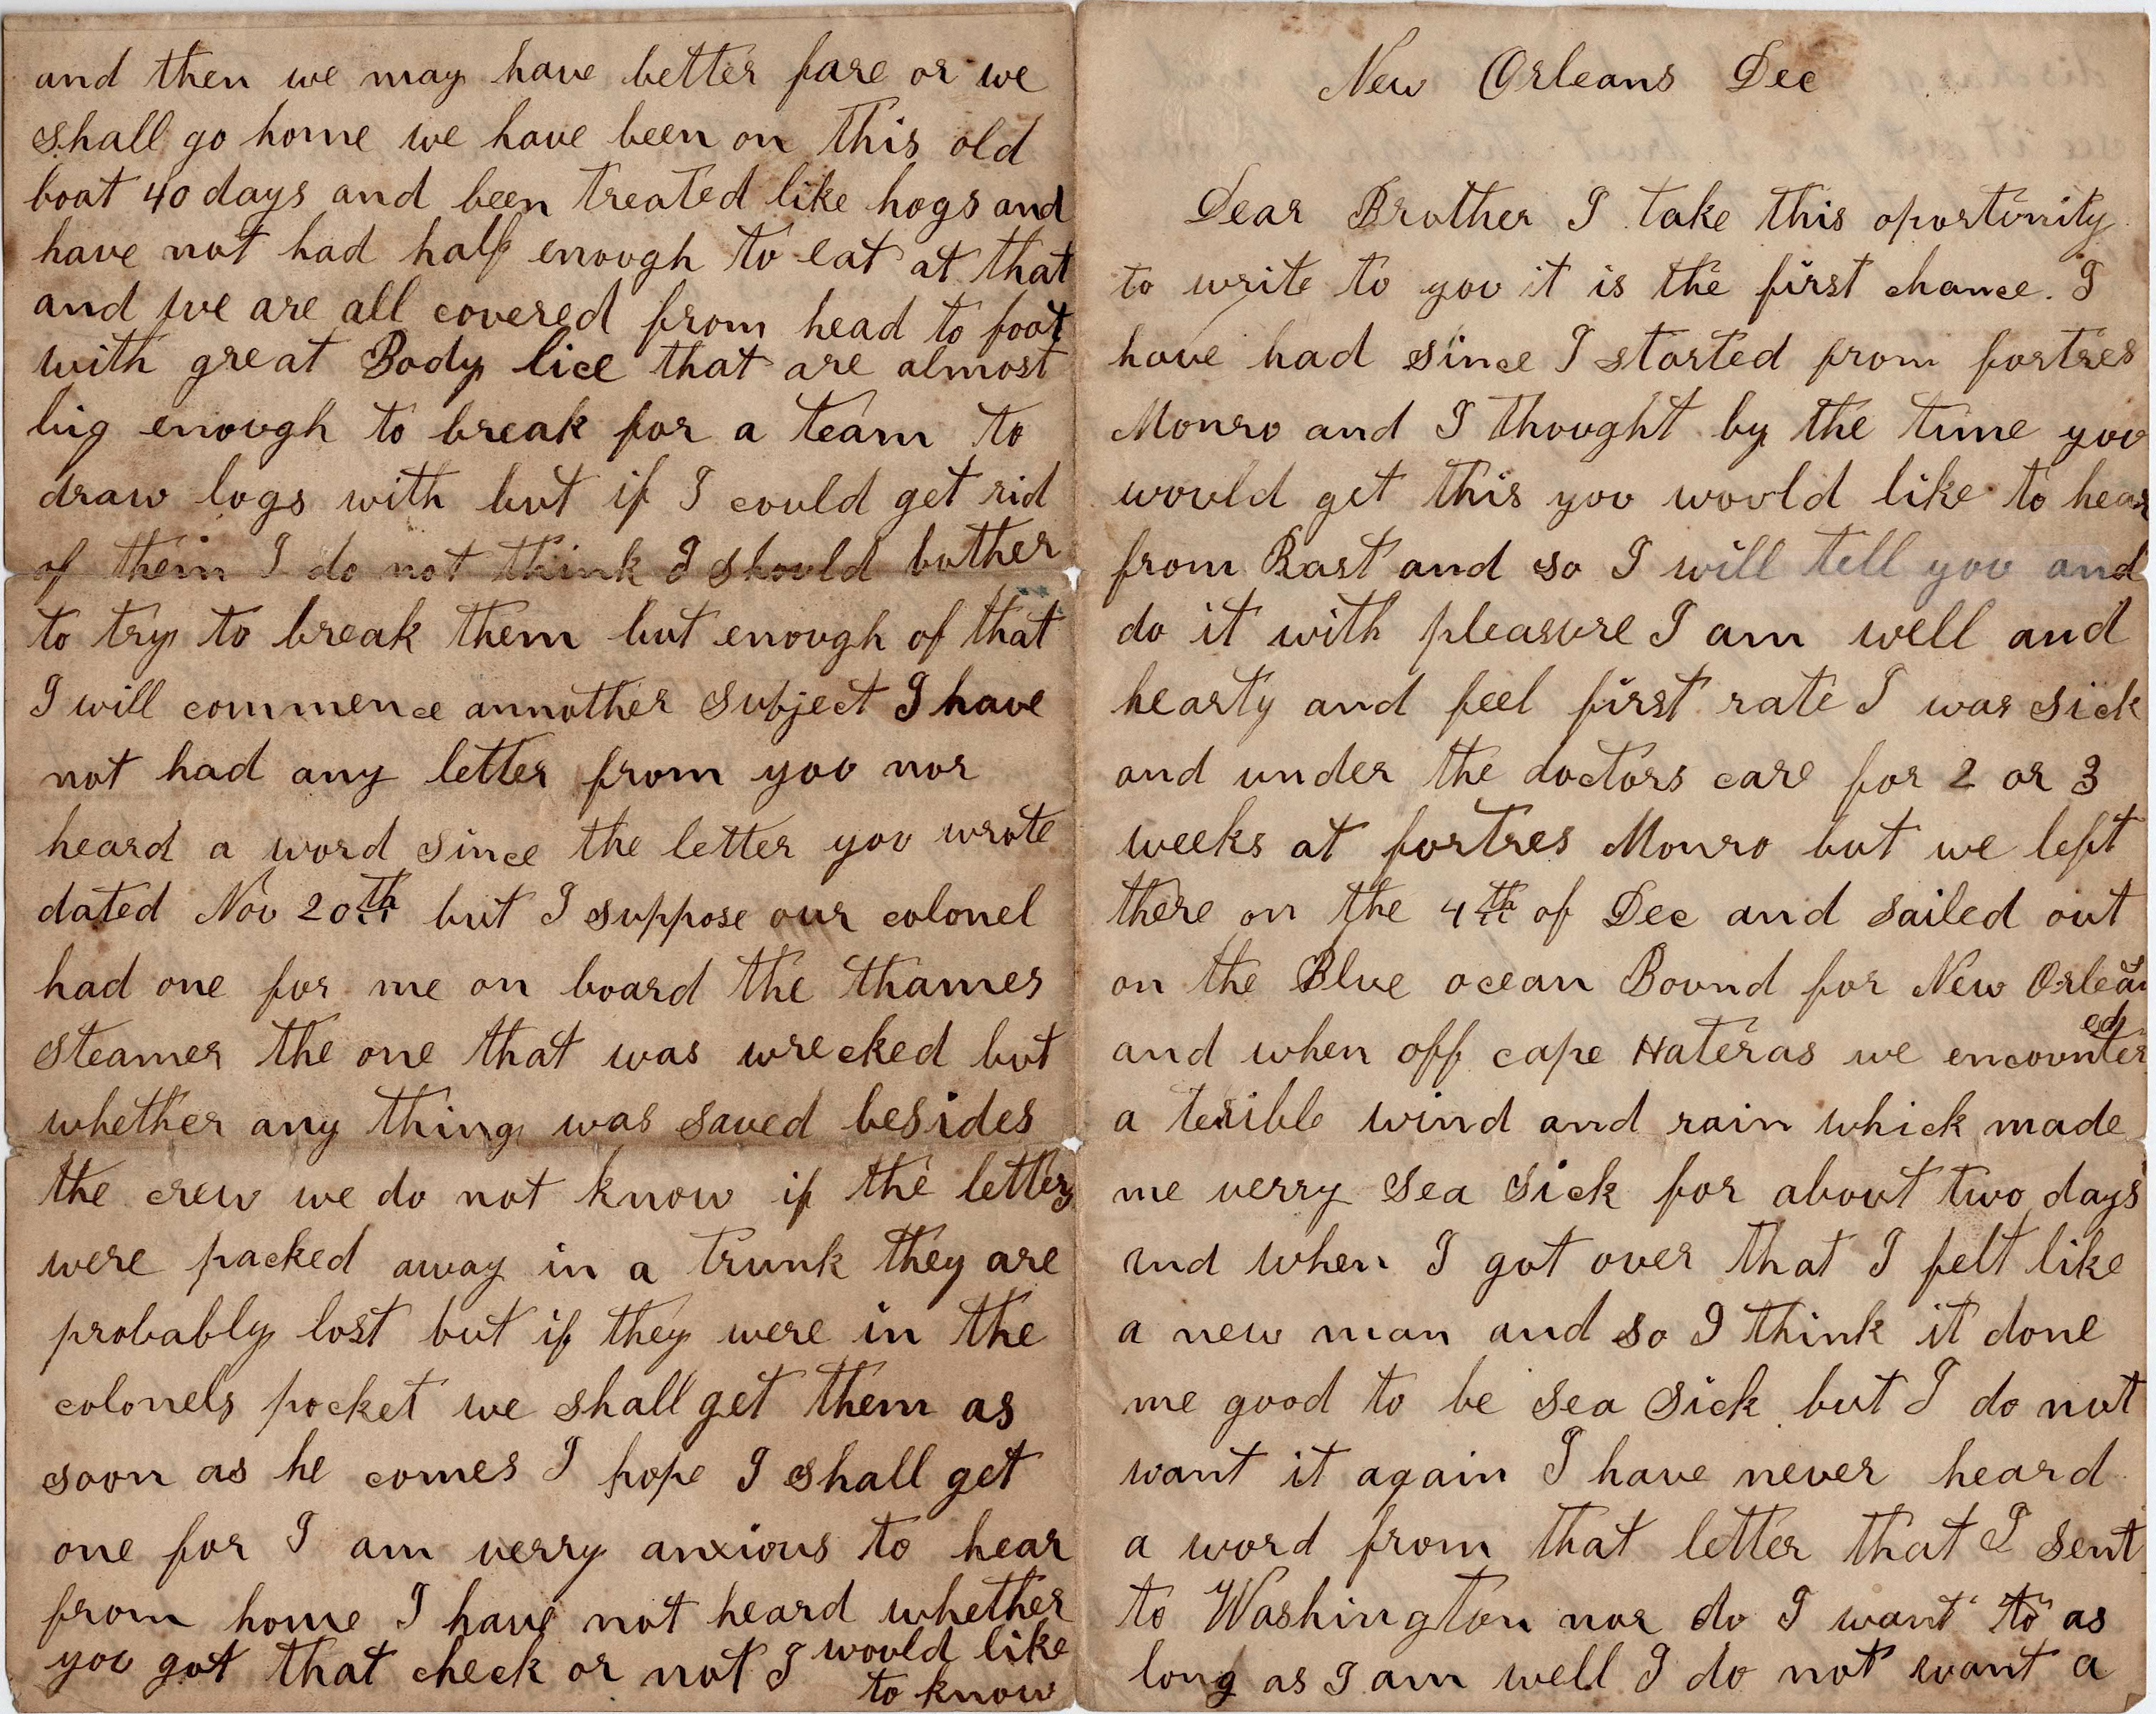 and then we may have better fare or we
shall go home we have been on this old
boat 40 days and been treated like hogs and
have not had half enough to eat at that
and we are all covered from head to foot
with great Body lice that are almost
big enough to break for a team to
draw logs with but if I could get rid
of them I do not think I should bother
to try to break them but enough of that
I will commence annother subject I have
not had any letter from you nor
heard a word since the letter you wrote
dated Nov 20th but I suppose our colonel
had one for me on board the thames
steamer the one that was wrecked but
whether any thing was saved besides
the crew we do not know if the letters
were packed away in a trunk they are
probably lost but if they were in the
colonels pocket we shall get them as
soon as he comes I hope I shall get
one for I am verry anxious to hear
from home I have not heard whether
you got that check or not I would like
to know
New Orleans Dec
Dear Brother I take this oportunity
to write to you it is the first chance. I
have had since I started from fortres
Monro and I thought by the time you
would get this you would like to hear
from Bast and so I will tell you and
do it with pleasure I am well and
hearty and feel first rate I was sick
and under the doctors care for 2 or 3
weeks at fortres Monro but we left
there on the 4th of Dec and sailed out
on the Blue ocean Bound for New Orlean
and when off cape Hateras we encountered
a terible wind and rain whick made
me verry sea sick for about two days
and when I got over that I felt like
a new man and so I think it done
me good to be sea sick but I do not
want it again I have never heard
a word from that letter that I sent
to Washington nor do I want to as
long as I am well I do not want a